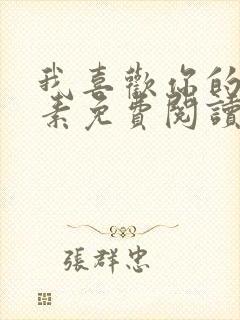 我喜歡你的
素免費閱讀
張群忠